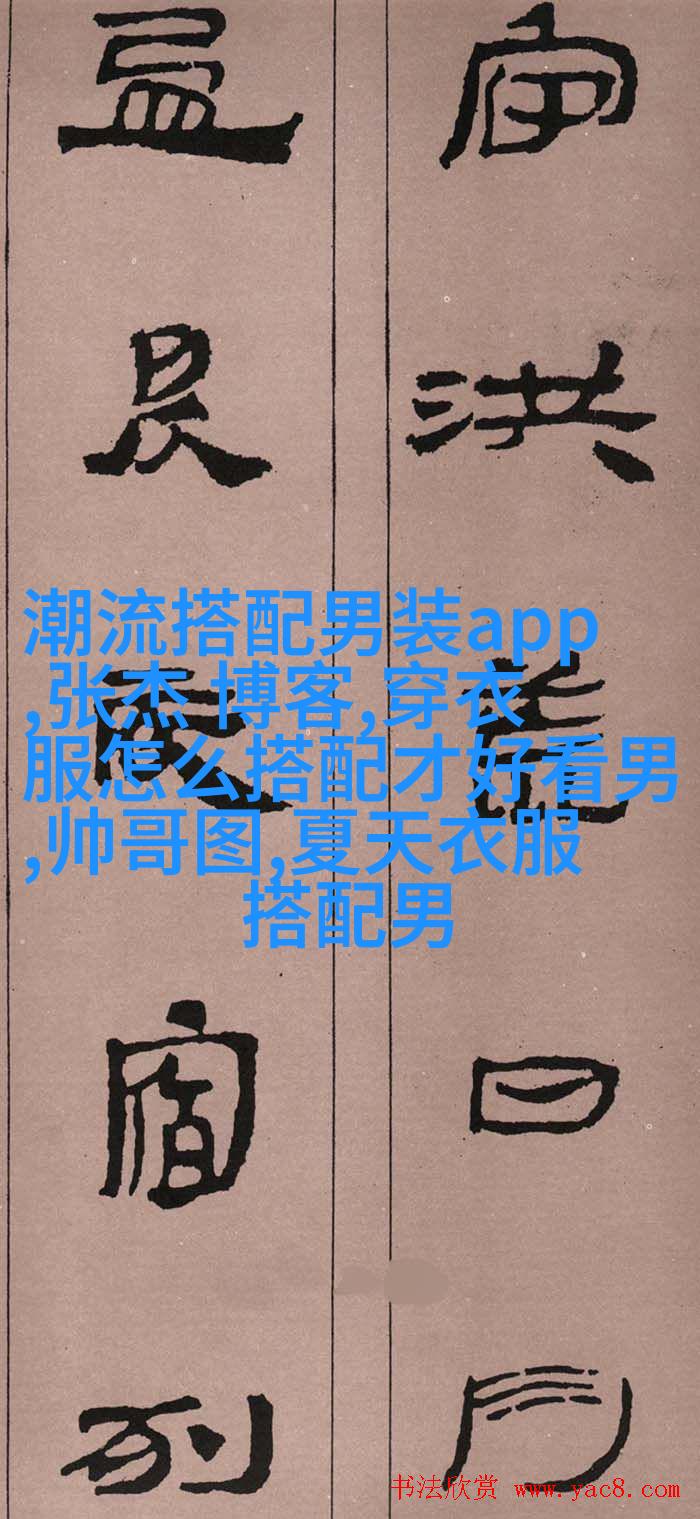 宇洪荒日月
盈昃辰宿列
潮流搭配男装app
,张杰 博客,穿衣
服怎么搭配才好看男
,帅哥图,夏天衣服
搭配男
书法欣赏 www.yac8.com